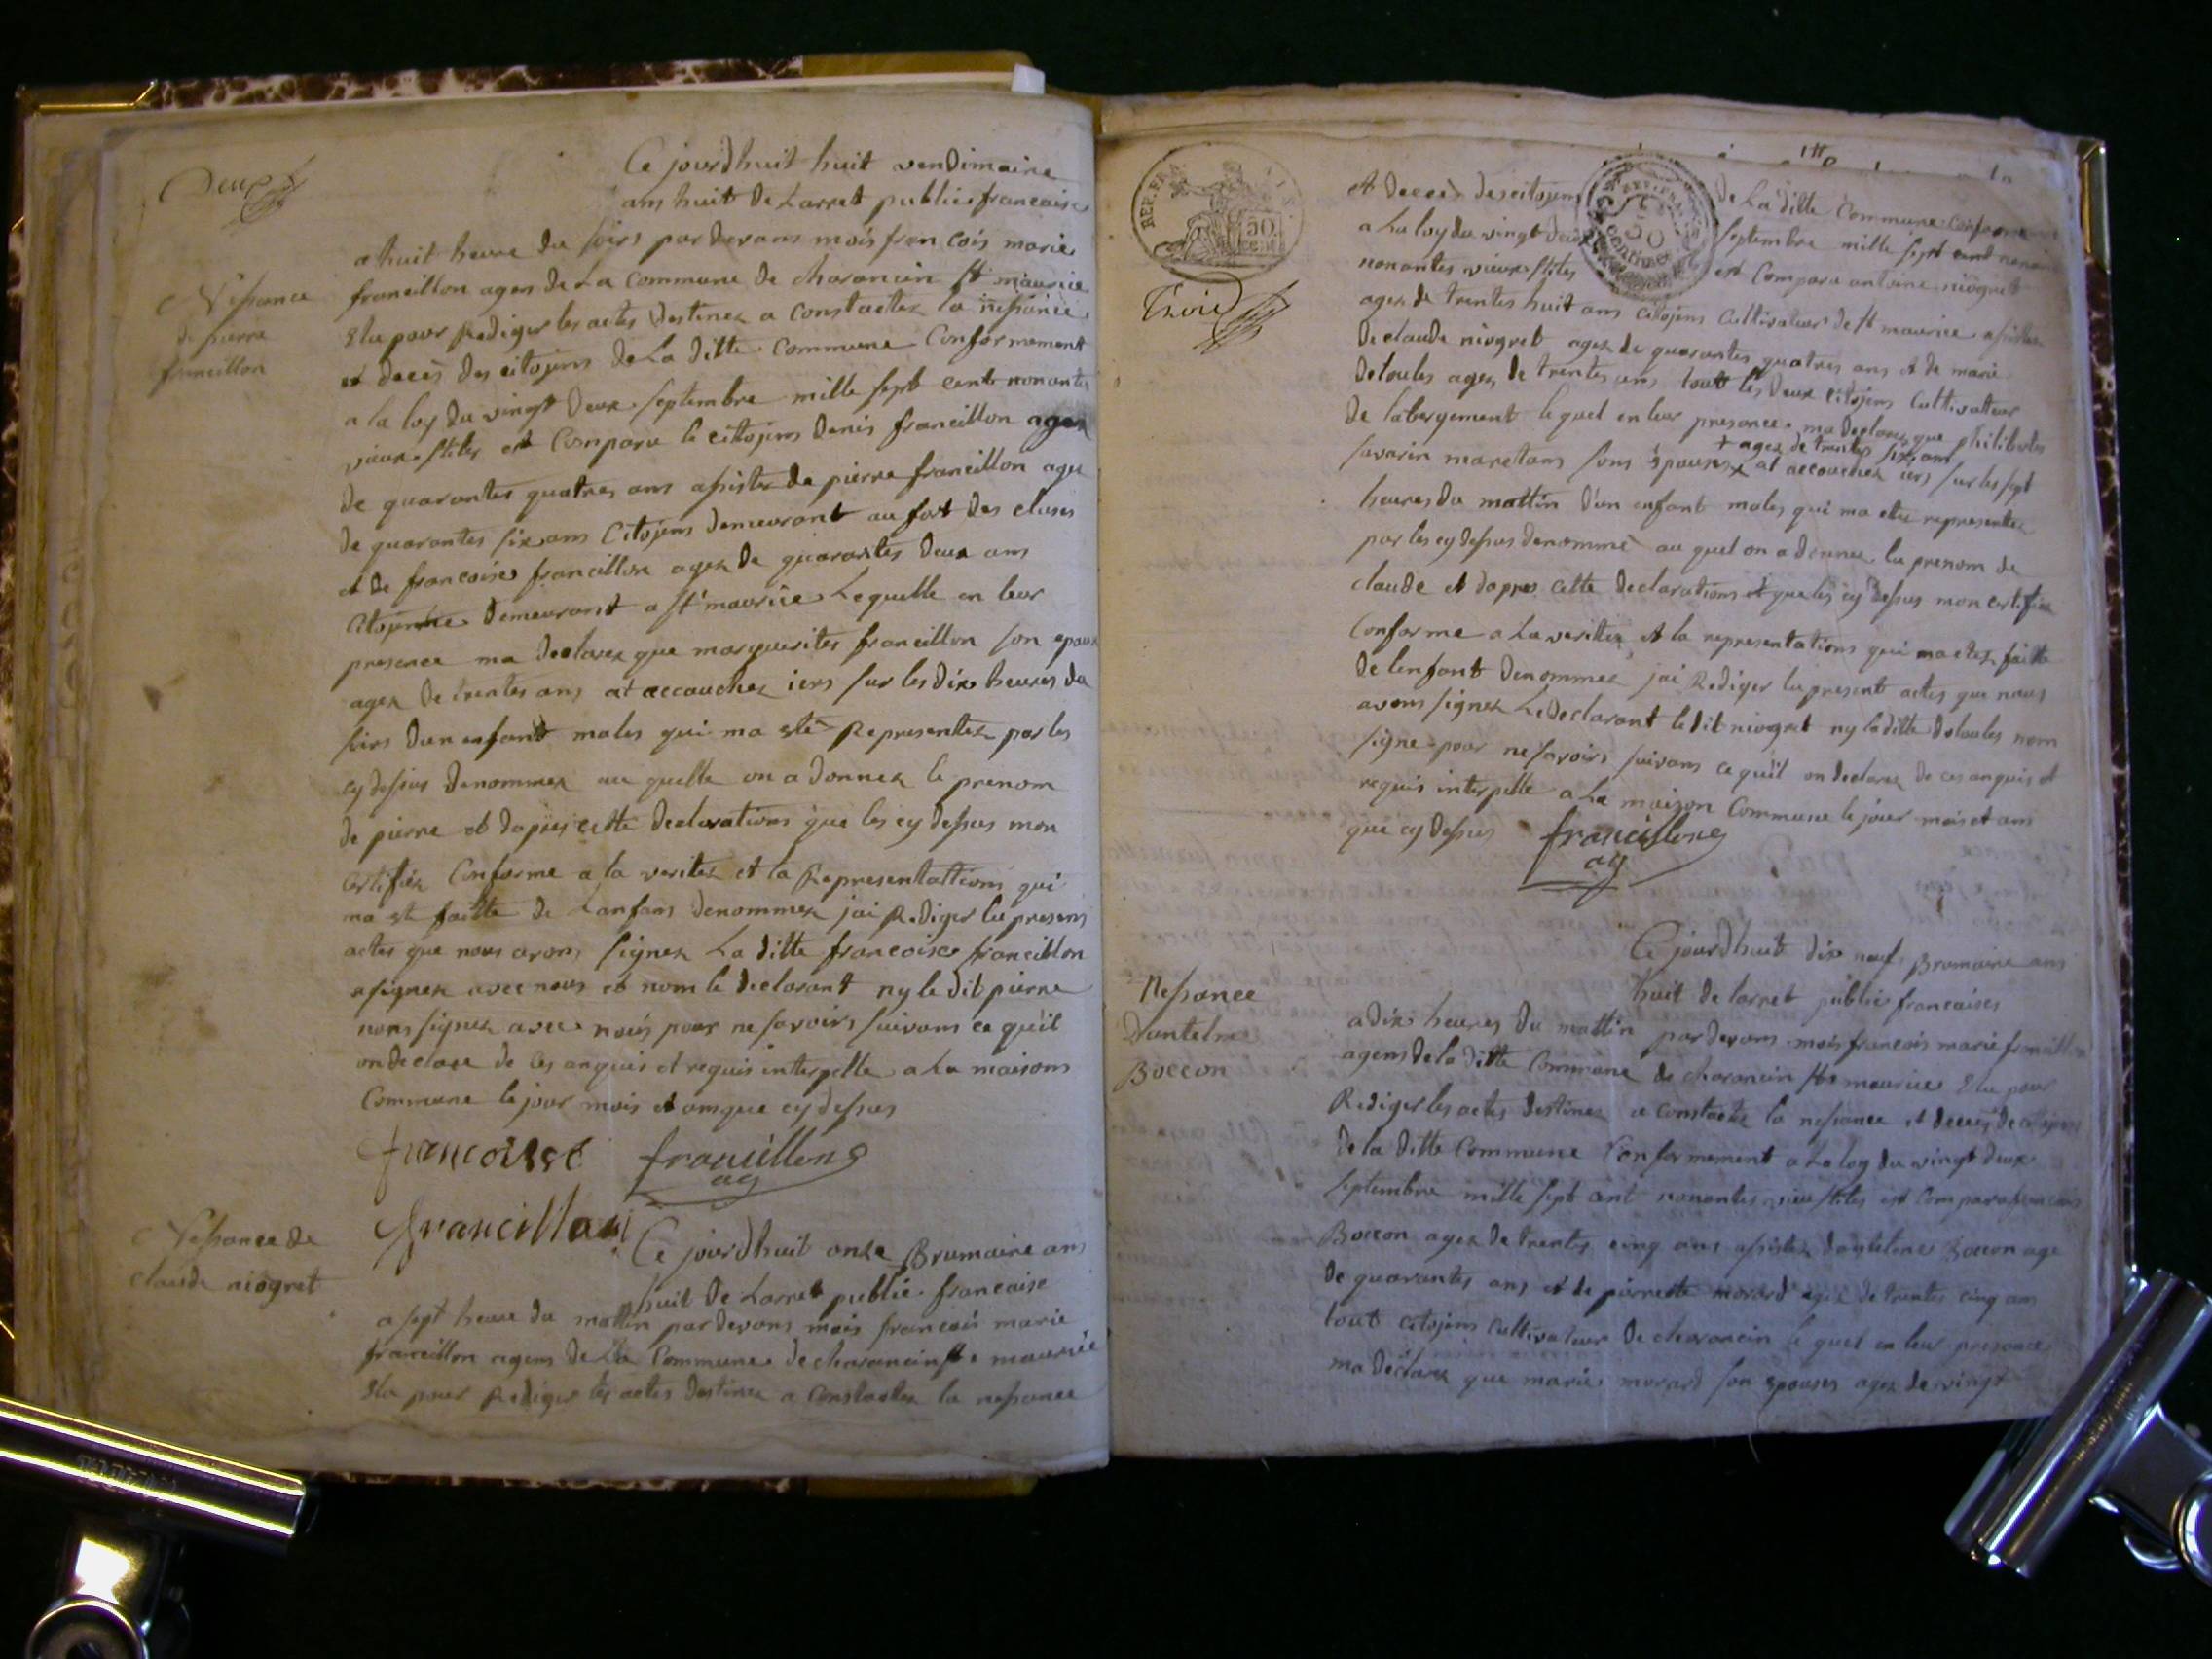 Deux
Ce jourdhuit huit vendimaire
ans huit de Larret publie francaise
a huit heure du soirs par devans mois francois marie
Nessance
de pierre
francillon
francillon agen de La commune de charancin st maurice
Elu pour Rediger les actes destinez a constacter la nessance
et decès des citojens de La ditte commune Conformement
a la loy du vingt deux septembre mille sept cent nonantes
vieux stiles est Comparu le cittojens denis francillon agez
de quarantes quatres ans assister de pierre francillon age
de quarantes six ans Citojens demeurant au fort des cluses
et de francoise francillon agez de quarantes deux ans
Citojenne demeurant a st maurice Lequelle en leur
presence ma declarez que marguerites francillon son epous
agez de trentes ans at accouchez iers sur les dix heures du
soirs dun enfant males qui ma eté Representez par les
cy dessus denommez au quelle on a donnez le prenom
de pierre et dapres cette declarations que les cy dessus mon
certifiez Conforme a la veritez et la Representattions qui
ma eté faitte de Lanfans denommez jai Rediger lu presens
actes que nous avons signez La ditte francoise francillon
a signez avec nous et nom le declarant ny le dit pierre
nons signez avec nous pour ne savoirs suivans ce quil
on declare de ces anquis et requis interpelle a La maisons
Commune le jour mois et an que cy dessus
francoisse francillong
ag
francillon
Nessance de
claude niogret
Ce jourdhuit onze Brumaire ans
huit de Larret publie francaise
a sept heure du mattin par devans mois francois marie
francillon agens de La Commune de charancin st maurice
Elu pour Rediger les actes destinez a Constacter la nessance
REP. FRA
50
CENT
Troie
et decès des citojens de La ditte Commune conforme
a La loy du vingt deux septembre mille sept cent nonan
nonantes vieux stiles est Compara antoine niogret
agez de trentes huit ans citojens cultivateur de st maurice assister
de claude niogret agez de quarantes quatres ans et de marie
deloules agez de trentes ans tout les deux citojens Cultivatteur
de labergement lequel en leur presance ma declarez que philiberte
+ agez de trentes six ans
savarin maretans sons Epouses x at accouchez iers sur les sept
heures du mattin d'un enfant males qui ma etee representez
par les cy dessus denommé au quel on a donnee lu prenom de
claude et dapres cette declarations et que les cy dessus mon certifiee
Conforme a La veritez et la representations qui ma etez faitte
de lenfant denommez jai Rediger lu present actes que nous
avons signez Le declarant le dit niogret ny la ditte deloules nom
signe pour ne savoirs suivans ce qu'il on declarez de ces anquis et
requis interpelle a La maison Commune le jour mois et ans
que cy dessus francillong
ag
Nessance
Dantelme
Boccon
Ce jourdhuit dix neuf Brumaire ans
huit de larret publie francaises
a dix heures du mattin par devans mois francois marie francillon
agens de la ditte Commune de charancin st maurice Elu pour
Rediger les actes destinez a constacter la nessance et decès de citojens
de la ditte Commune Conformement a La loy du vingt deux
septembre mille sept cent nonantes vieu stiles est compara francois
Boccon agez de trentes cinq ans assister dantelme Boccon age
de quarantes ans et de pierrette morard agez de trentes cinq ans
tout citojens Cultivateur de charancin le quel en leur presance
ma declarez que marie morard son Epouses agez de vingt